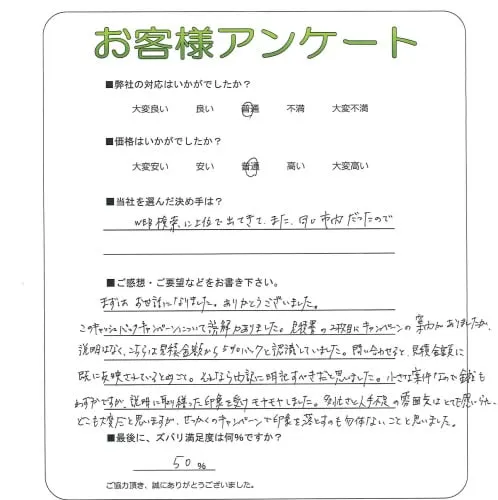 お客様アンケート
■弊社の対応はいかがでしたか？
大変良い 良い 普通 不満 大変不満
■価格はいかがでしたか？
大変安い 安い 普通 高い 大変高い
■当社を選んだ決め手は？
WEB検索に上位で出てきて、また、同じ市内だったので
■ご感想・ご要望などをお書き下さい。
まずは お世話になりました。ありがとうございました。
このキャッシュバックキャンペーンについて誤解がありました。見積書の2枚目にキャンペーンの案内がありましたが、
説明はなく、こちらは見積金額から バックと認識していました。問い合わせると、見積金額に
既に反映されているとのこと。それなら内訳に明記すべきだと思いました。小さな案件なので金額も
わずかですが、説明に取り繕った印象を受けモヤモヤしました。 人手不足の雰囲気はとても
どこも大変だと思いますが、せっかくのキャンペーンで印象を落とすのも勿体ないことと思いました。
■最後に、ズバリ満足度は何%ですか？
50%
ご協力頂き、誠にありがとうございました。